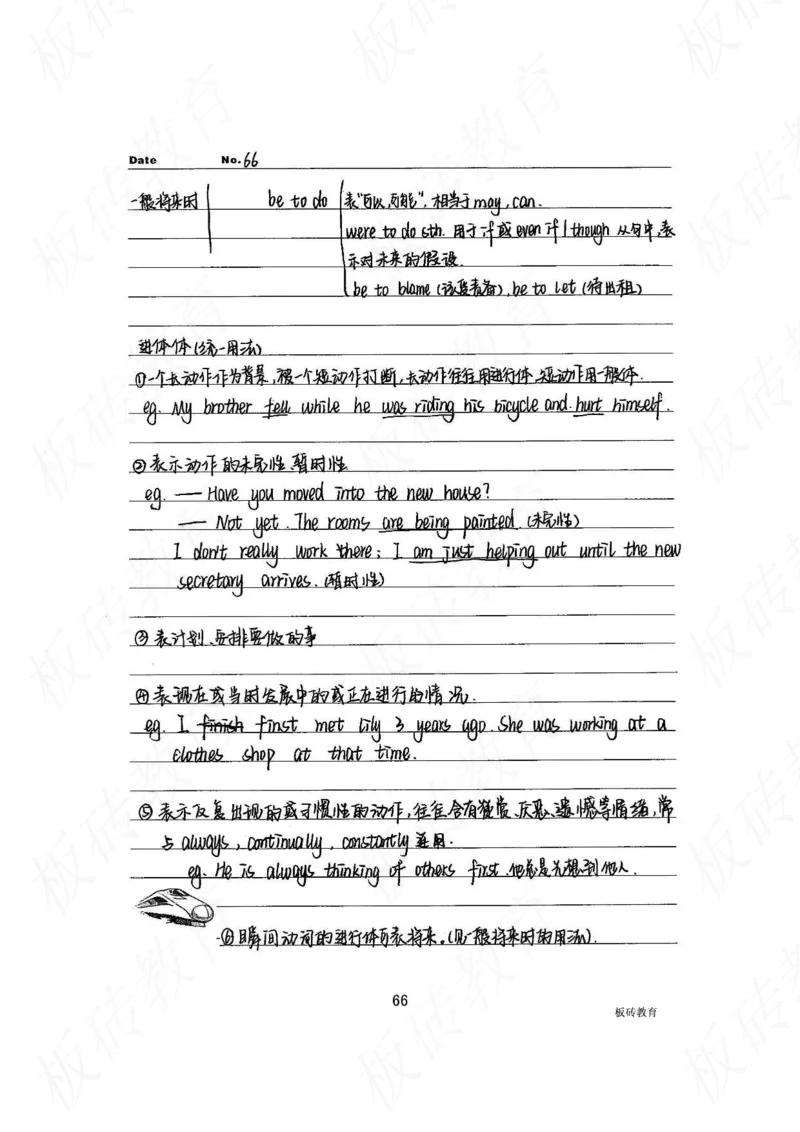 Date No.66
一般将来时 be to do 表"可以,可能",相当于may,can.
were to do sth. 用于if或even if/though从句中,表
示对未来的假设.
be to blame(该受责备),be to let(待出租)
进体体(统一用法)
①一个长动作作为背景,被一个短动作打断,长动作往往用进行体,短动作用一般体.
eg. My brother fell while he was riding his bicycle and hurt himself.
②表示动作的未完性,暂时性
eg. — Have you moved into the new house?
— Not yet. The rooms are being painted.(未完性)
I don't really work there; I am just helping out until the new
secretary arrives.(暂时性)
③表计划、安排要做的事
④表现在或当时发展中的或正在进行的情况.
eg. I finish first met Lily 3 years ago. She was working at a
clothes shop at that time.
⑤表示反复出现的或习惯性的动作,往往含有赞赏、厌恶、遗憾等情绪,常
与always, continually, constantly连用.
eg. He is always thinking of others first.他总是先想到他人.
⑥瞬间动词的进行体可表将来.(见一般将来时的用法).
66
板砖教育